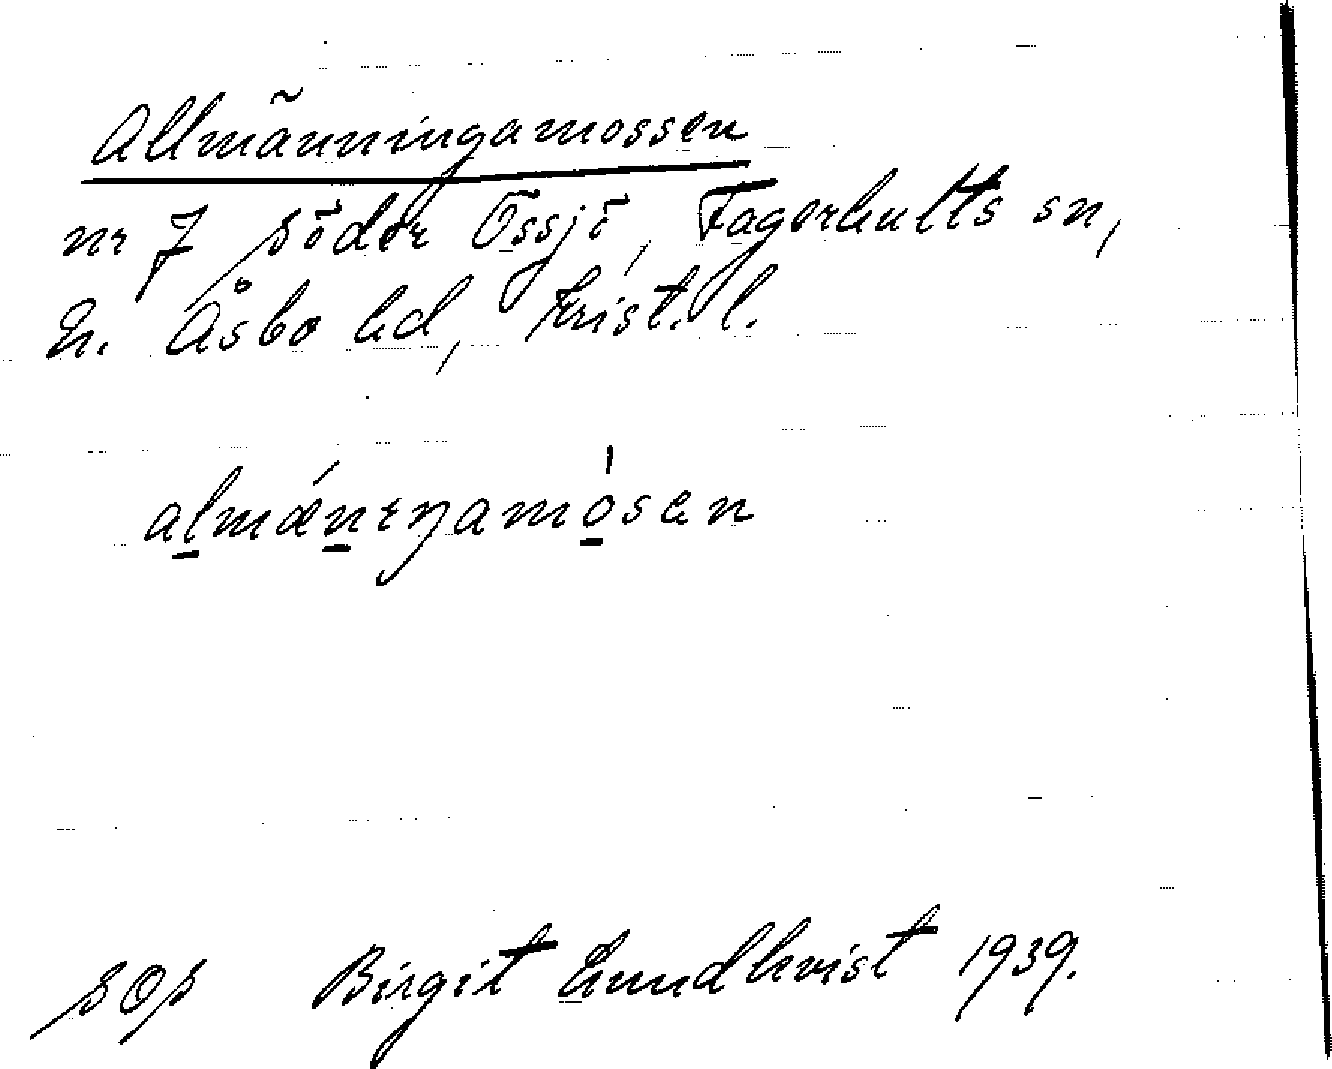 Allmänningamossen
nr 7 Söder Össjö, Fagerhults sn,
N. Åsbo hd, Krist. l.
almǽnɩŋamósen
SOS Birgit Lundkvist 1939.